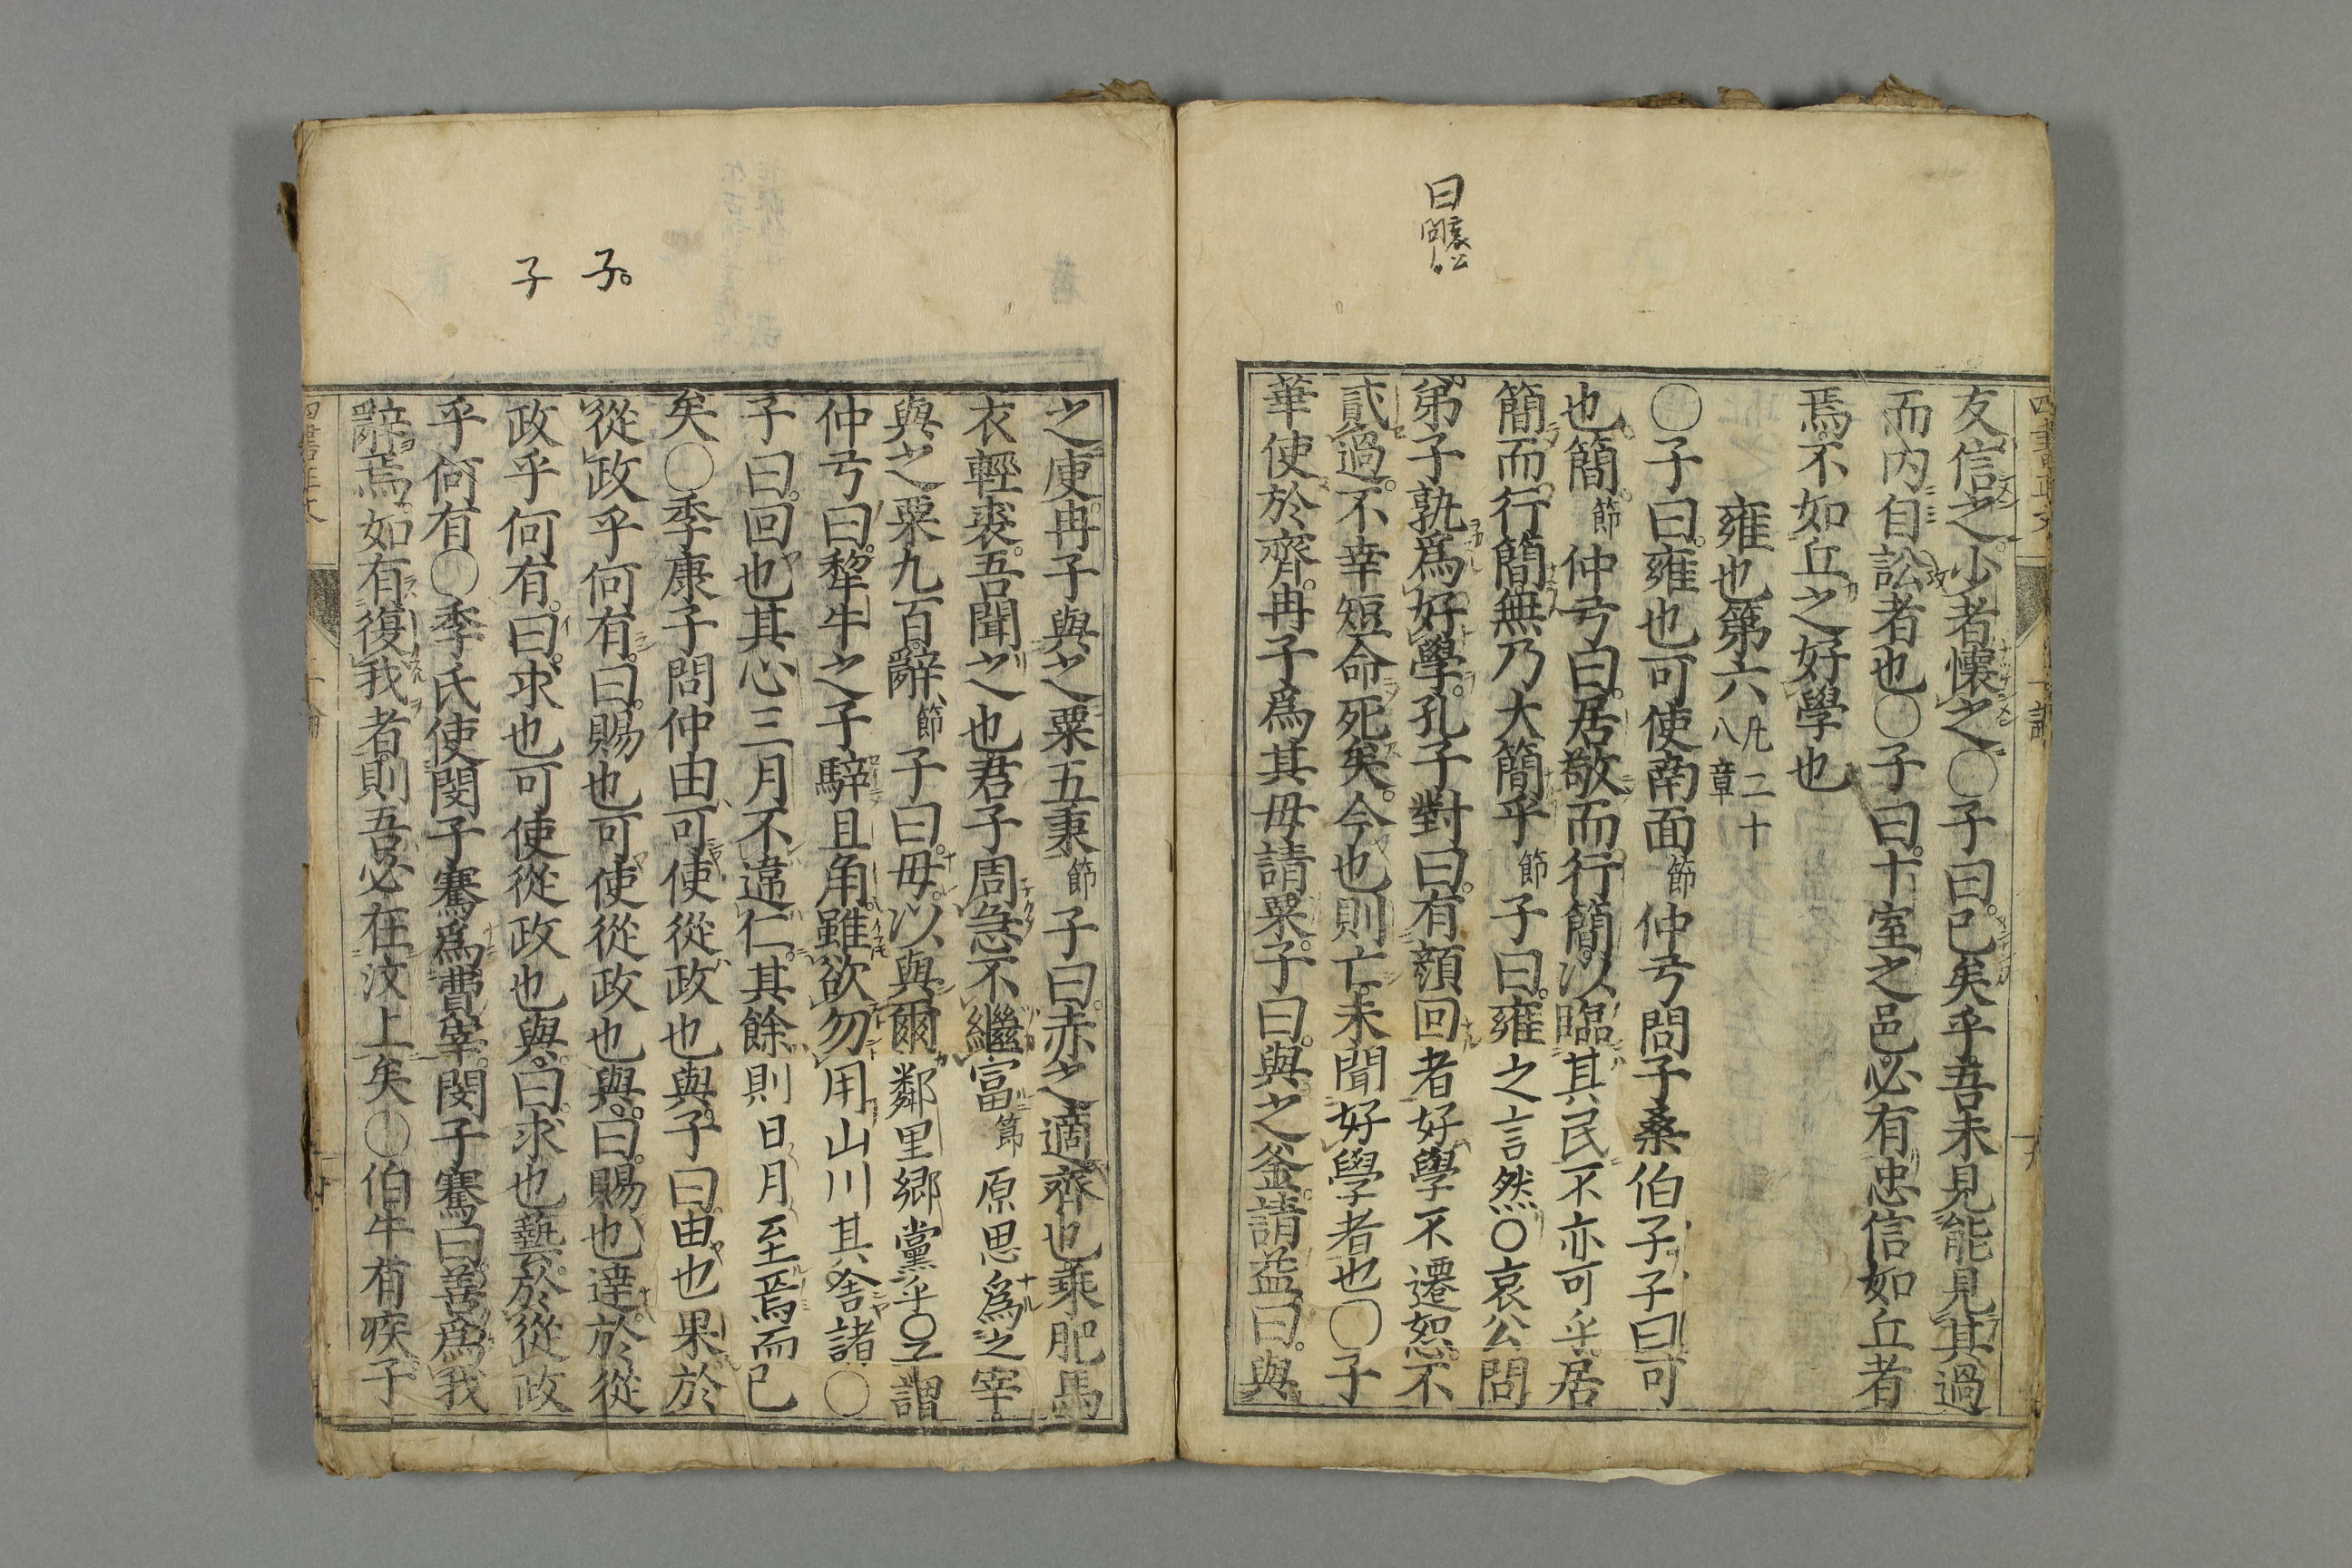 曰
哀公
問
友信之少者懷之○子曰已矣乎吾未見能見其過
而內自訟者也○子曰十室之邑必有忠信如丘者
焉不如丘之好學也
雍也第六凡二十
八章
○子曰雍也可使南面節仲弓問子桑伯子子曰可
也簡節仲弓曰居敬而行簡以臨其民不亦可乎居
簡而行簡無乃大簡乎節子曰雍之言然○哀公問
弟子孰爲好學孔子對曰有顔回者好學不遷怒不
貳過不幸短命死矣今也則亡未聞好學者也○子
華使於齊冉子爲其母請粟子曰與之釜請益曰與
子
子
之庾冉子與之粟五秉節子曰赤之適齊也乘肥馬
衣輕裘吾聞之也君子周急不繼富節原思爲之宰
與之粟九百辭節子曰毋以與爾鄰里鄉黨乎○子謂
仲弓曰犂牛之子騂且角雖欲勿用山川其舍諸○
子曰回也其心三月不違仁其餘則日月至焉而已
矣○季康子問仲由可使從政也與子曰由也果於
從政乎何有曰賜也可使從政也與曰賜也達於從
政乎何有曰求也可使從政也與曰求也藝於從政
乎何有○季氏使閔子騫爲費宰閔子騫曰善爲我
辭焉如有復我者則吾必在汶上矣○伯牛有疾子